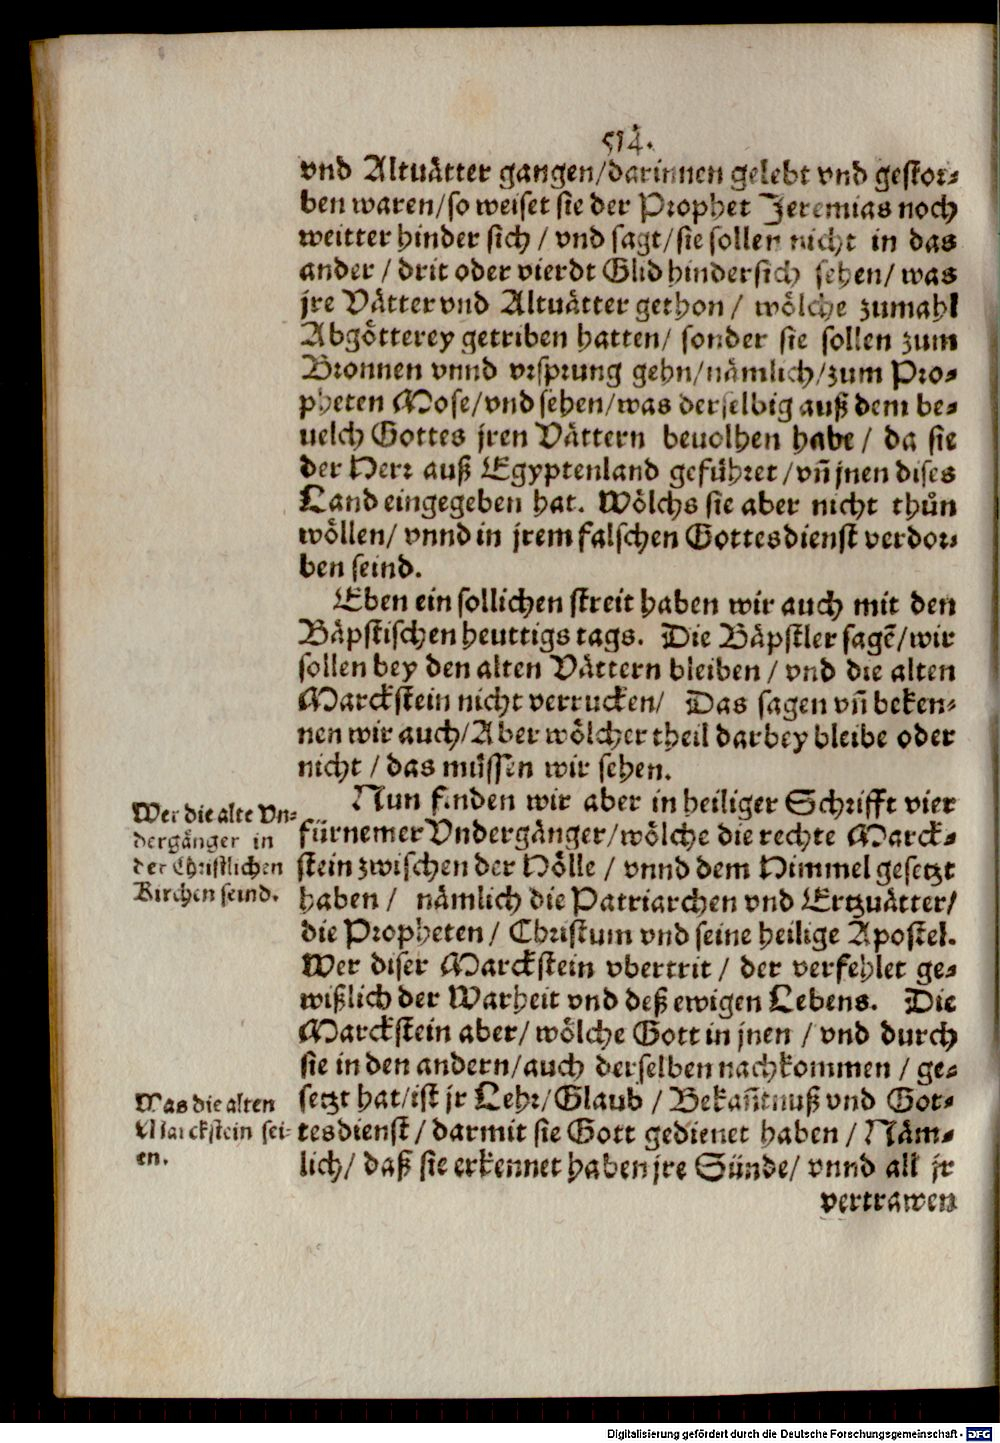 514.
vnd Altuätter gangen/darinnen gelebt vnd gestor-
ben waren/so weiset sie der Prophet Jeremias noch
weitter hinder sich / vnd sagt/sie sollen nicht in das
ander / drit oder vierdt Glid hindersich sehen/ was
jre Vätter vnd Altuätter gethon / wölche zumahl
Abgötterey getriben hatten/ sonder sie sollen zum
Bronnen vnnd vrsprung gehn/nämlich/zum Pro-
pheten Mose/vnd sehen/was derselbig auß dem be-
uelch Gottes jren Vättern beuolhen habe / da sie
der Herr auß Egyptenland geführet/vñ jnen dises
Land eingegeben hat. Wölchs sie aber nicht thůn
wöllen/ vnnd in jrem falschen Gottesdienst verdor-
ben seind.
Eben ein sollichen streit haben wir auch mit den
Bäpstischen heuttigs tags. Die Bäpstler sagẽ/wir
sollen bey den alten Vättern bleiben / vnd die alten
Marckstein nicht verrucken/ Das sagen vñ beken-
nen wir auch/Aber wölcher theil darbey bleibe oder
nicht / das müssen wir sehen.
Nun finden wir aber in heiliger Schrifft vier
fürnemer Vndergänger/wölche die rechte Marck-
stein zwischen der Hölle / vnnd dem Himmel gesetzt
haben / nämlich die Patriarchen vnd Ertzuätter/
die Propheten / Christum vnd seine heilige Apostel.
Wer diser Marckstein vbertrit / der verfehlet ge-
wißlich der Warheit vnd deß ewigen Lebens. Die
Marckstein aber/ wölche Gott in jnen / vnd durch
sie in den andern/auch derselben nachkommen / ge-
setzt hat/ist jr Lehr/Glaub / Bekañtnuß vnd Got-
tesdienst / darmit sie Gott gedienet haben / Näm-
lich/ daß sie erkennet haben jre Sünde/ vnnd all jr
vertrawen
Wer die alte Vn-
dergänger in
der Christlichen
Kirchen seind.
Was die alten
Marckstein sei-
en.
Digitalisierung gefördert durch die Deutsche Forschungsgemeinschaft - DFG